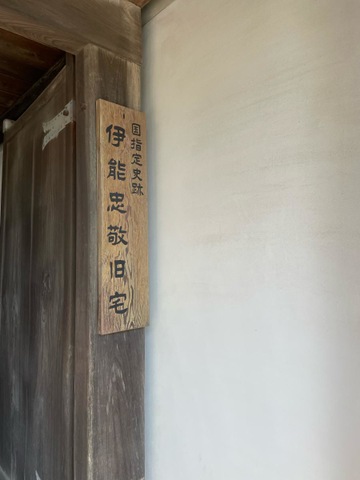 国指定史跡
伊能忠敬旧宅